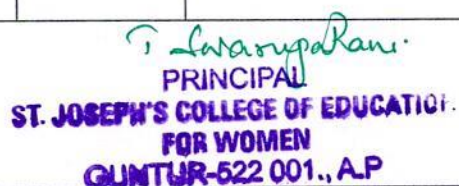 T. Swarupa Rani.
PRINCIPAL
ST. JOSEPH'S COLLEGE OF EDUCATION
FOR WOMEN
GUNTUR-522 001., A.P